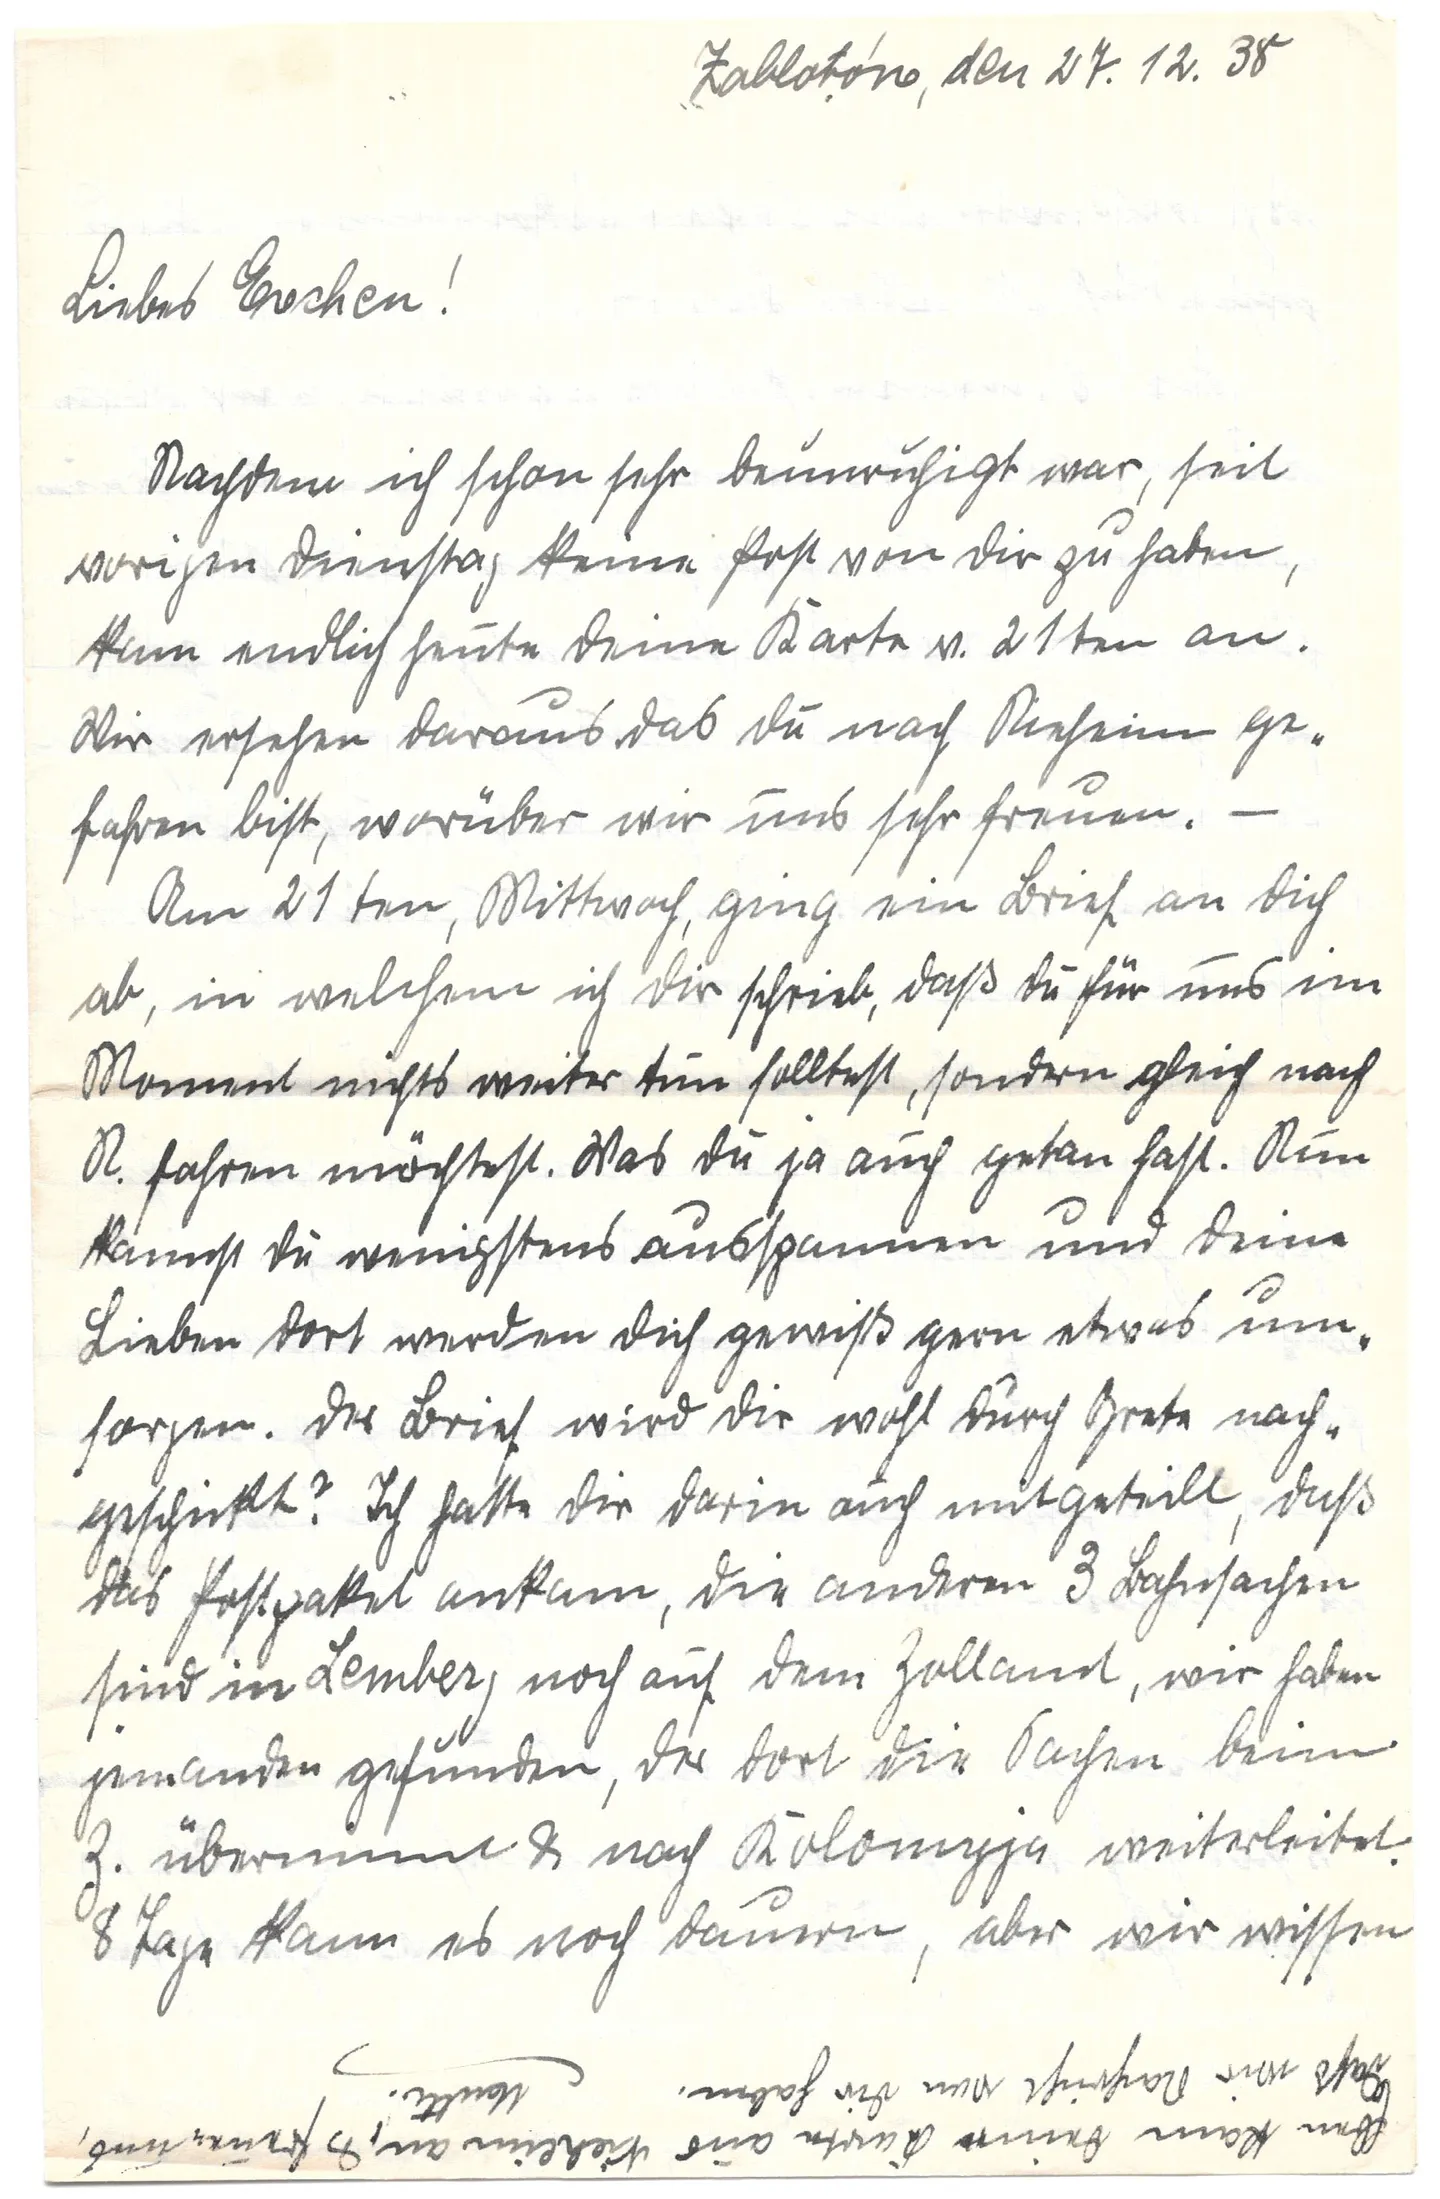 Zablotów, den 27. 12. 38
Liebes Evchen!
Nachdem ich schon sehr beunruhigt war, seit
vorigen Dienstag keine Post von dir zu haben,
kam endlich heute deine Karte v. 21ten an.
Wir ersehen daraus das du nach Nieheim ge-
fahren bist, worüber wir uns sehr freuen. —
Am 21ten, Mittwoch, ging ein Brief an dich
ab, in welchem ich dir schrieb, daß du für uns im
Moment nichts weiter tun solltest, sondern gleich nach
N. fahren möchtest. Was du ja auch getan hast. Nun
kannst du wenigstens ausspannen und deine
Lieben dort werden dich gewiß gern etwas um-
sorgen. Der Brief wird dir wohl durch Grete nach-
geschickt? Ich hatte dir darin auch mitgeteilt, daß
das Postpaket ankam, die anderen 3 Bahnsachen
sind in Lemberg noch auf dem Zollamt, wir haben
jemanden gefunden, der dort die Sachen beim
Z. übernimmt & nach Kolomyja weiterleitet.
8 Tage kann es noch dauern, aber wir wissen
Eben kam deine Karte aus Nieheim an, & freuen uns,
daß wir Nachricht von dir haben.
Mutti.